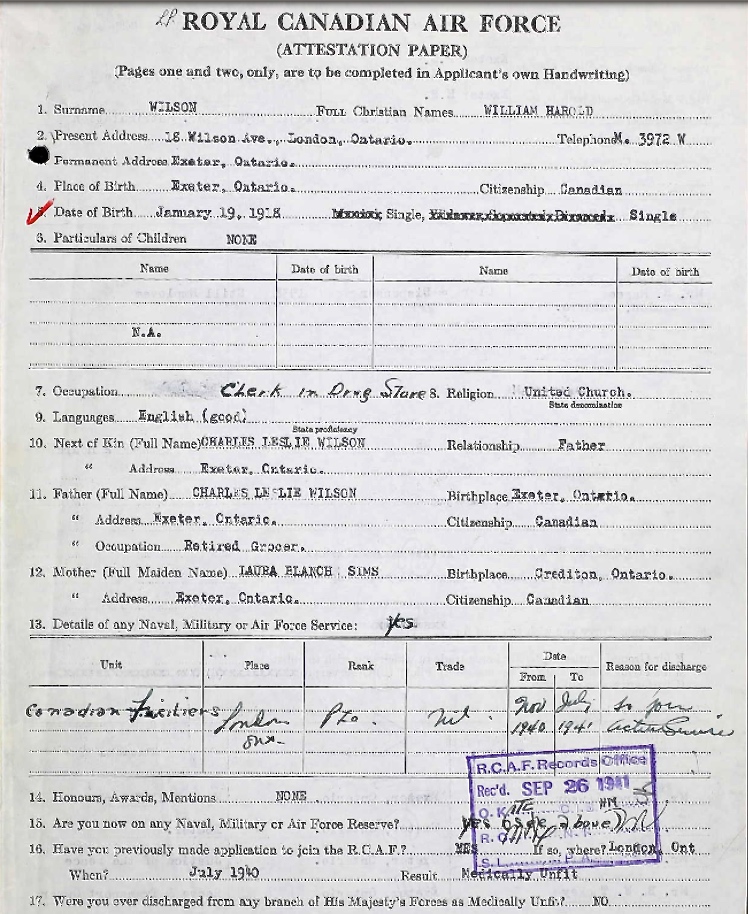 ROYAL CANADIAN AIR FORCE
(ATTESTATION PAPER)
(Pages one and two, only, are to be completed in Applicant's own Handwriting)
1. Surname WILSON Full Christian Names WILLIAM HAROLD
2. Present Address 18 Wilson Ave., London, Ontario. Telephone M. 3972 W
Permanent Address Exeter, Ontario.
4. Place of Birth Exeter, Ontario. Citizenship Canadian
Date of Birth January 19, 1918 Single, Single
6. Particulars of Children NONE
Name Date of birth Name Date of birth
N.A.
7. Occupation Clerk in Drug Store 8. Religion United Church.
State denomination
9. Languages English (good)
State proficiency
10. Next of Kin (Full Name) CHARLES LESLIE WILSON Relationship Father
" Address Exeter, Ontario.
11. Father (Full Name) CHARLES LESLIE WILSON Birthplace Exeter, Ontario.
" Address Exeter, Ontario. Citizenship Canadian
" Occupation Retired Grocer.
12. Mother (Full Maiden Name) LAURA BLANCH SIMS Birthplace Crediton, Ontario.
" Address Exeter, Ontario. Citizenship Canadian
13. Details of any Naval, Military or Air Force Service: Yes
Unit Place Rank Trade Date Reason for discharge
From To
Canadian Fusiliers London Ont. Pte. Nil. Nov 1940 July 1941 to join active Service
R.C.A.F. Records Office
Rec'd. SEP 26 1941
14. Honours, Awards, Mentions NONE
15. Are you now on any Naval, Military or Air Force Reserve? above)
16. Have you previously made application to join the R.C.A.F.? YES If so, where? London, Ont
When? July 1940 Result Medically Unfit
17. Were you ever discharged from any branch of His Majesty's Forces as Medically Unfit? NO